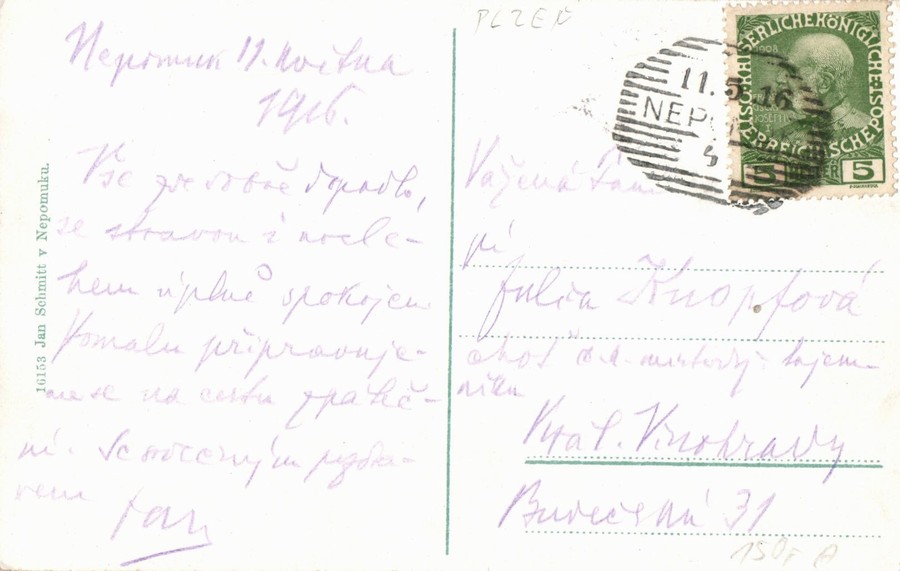 Nepomuk 11. května
1916.
Vše dobře dopadlo,
se stravou i nocle-
hem úplně spokojen
Pomalu připravuje-
me se na cestu zpáteč-
ní. Se srdečným pozdra-
vem
Jan
16153 Jan Schmitt v Nepomuku.
PLZEŇ
11.5.16
NEP
KAISERLICHE KÖNIGLICHE
ÖSTERREICHISCHE POST
1908
5 HELLER 5
Vážená Paní
pí
Julia Knopfová
choť tajem-
níka
Král. Vinohrady
Budečská 31
150,- A